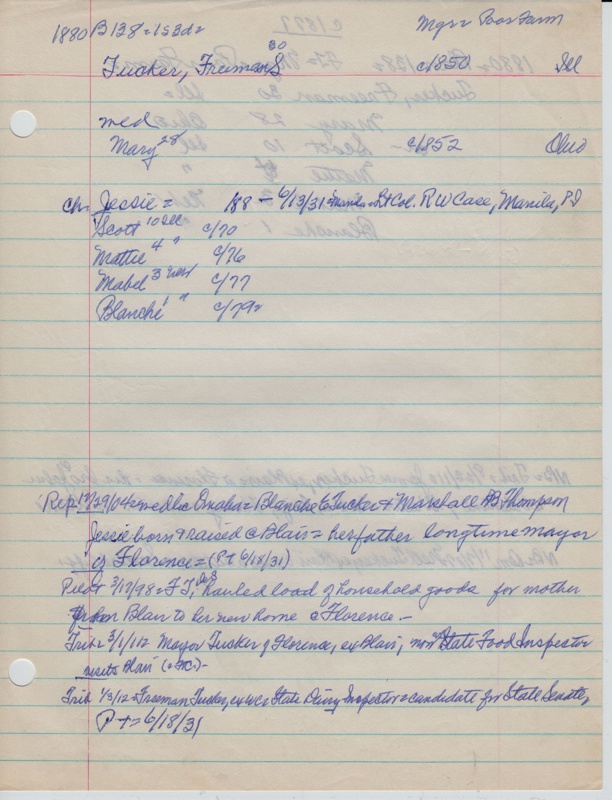 c1877
1880 B138=153d=
Mgr= Poor Farm
Tucker, Freeman S 30 c1850 Ill
med
Mary 28 c1852 Ohio
ch. Jessie = 188 - 6/13/31= Manila= Lt Col. R W Case, Manila, P I
Scott 10 Ill c/70
Mattie 4 " c/76
Mabel 3 Neb c/77
Blanche 1 " c/79=
Rep. 12/29/04=med @ Omaha= Blanche G Tucker + Marshall B Thompson
Jessie born + raised @ Blair= her father longtime mayor
of Florence=(P-T 6/18/31)
Pilot 3/17/98= F T, hauled load of household goods for mother
from Blair to her new home @ Florence.-
Trib= 3/1/112 Mayor Tucker of Florence, ex Blair, now State Food Inspector
visits Blair
Trib 1/3/12=Freeman Tucker, ex WC= State Dairy Inspector=candidate for State Senate,
P-T= 6/18/31